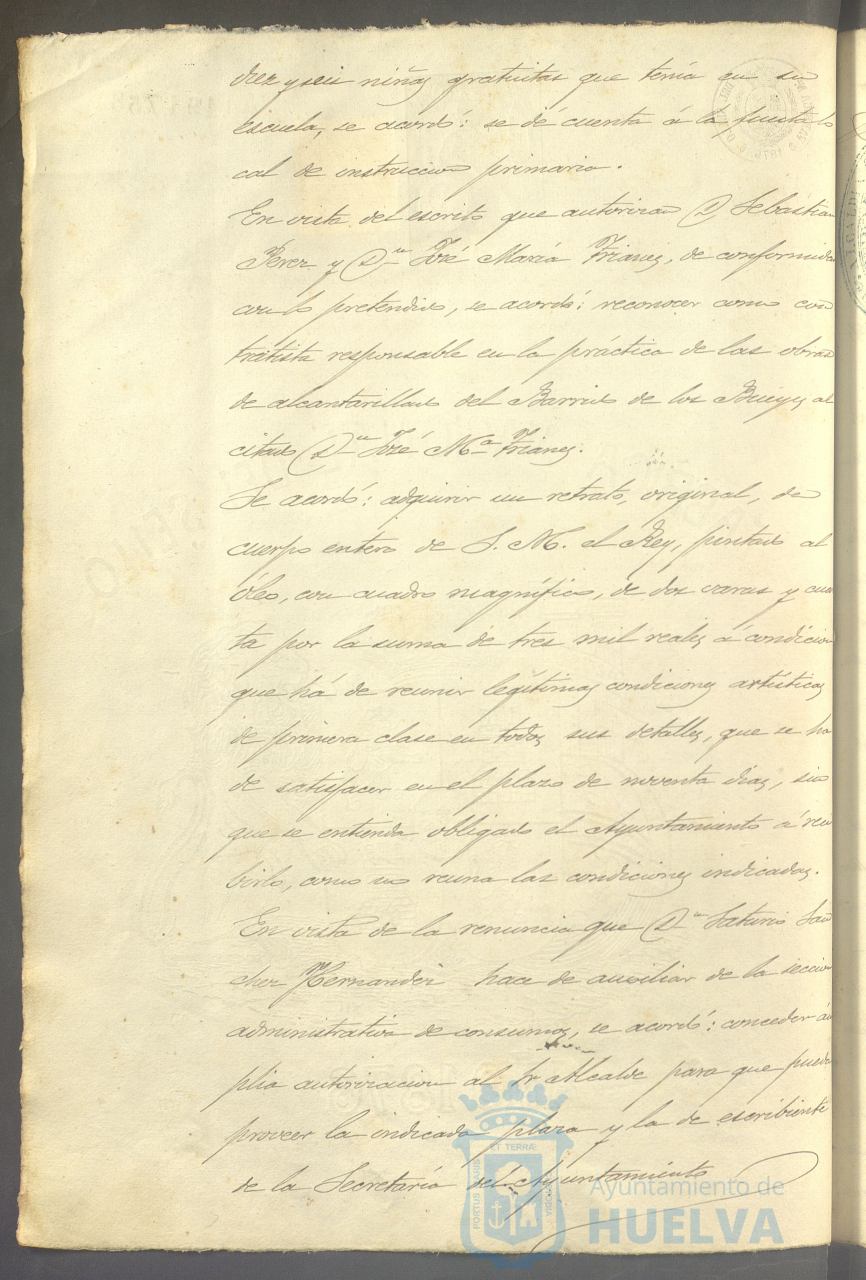 diez y seis niñas gratuitas que tenía en su
escuela, se acordó: se dé cuenta á la Junta lo
cal de instruccion primaria.
En vista del escrito que autorizan D Sebastian
Perez y Dn José María Trianes, de conformidad
con lo pretendido, se acordó: reconocer como con
tratista responsable en la práctica de las obras
de alcantarillado del Barrio de los Bueyes al
citado Dn José Ma Trianes.
Se acordó: adquirir un retrato, original, de
cuerpo entero de S. M. el Rey, pintado al
óleo, con cuadro magnífico, de dos varas y cuar
ta por la suma de tres mil reales á condicion
que há de reunir legítimas condiciones artísticas
de primera clase en todos sus detalles, que se ha
de satisfacer en el plazo de noventa dias, sin
que se entienda obligado el Ayuntamiento á reci
birlo, como no reuna las condiciones indicadas.
En vista de la renuncia que Dn Saturio San
chez Hernandez hace de auxiliar de la seccion
administrativa de consumos, se acordó: conceder ám
plia autorizacion al Sr Alcalde para que pueda
proveer la indicada plaza y la de escribiente
de la Secretaría del Ayuntamiento
PORTUS MARIS ET TERRAE CUSTODIA
Ayuntamiento de
HUELVA